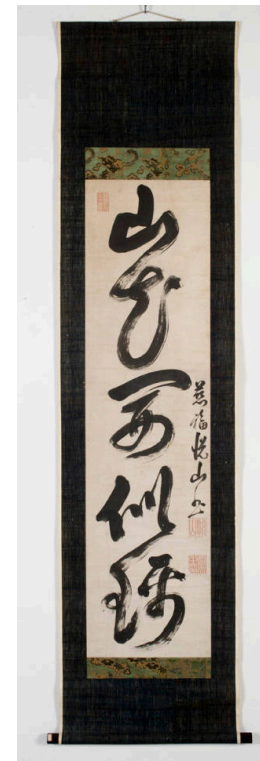 山花開似錦
慈福悦山書